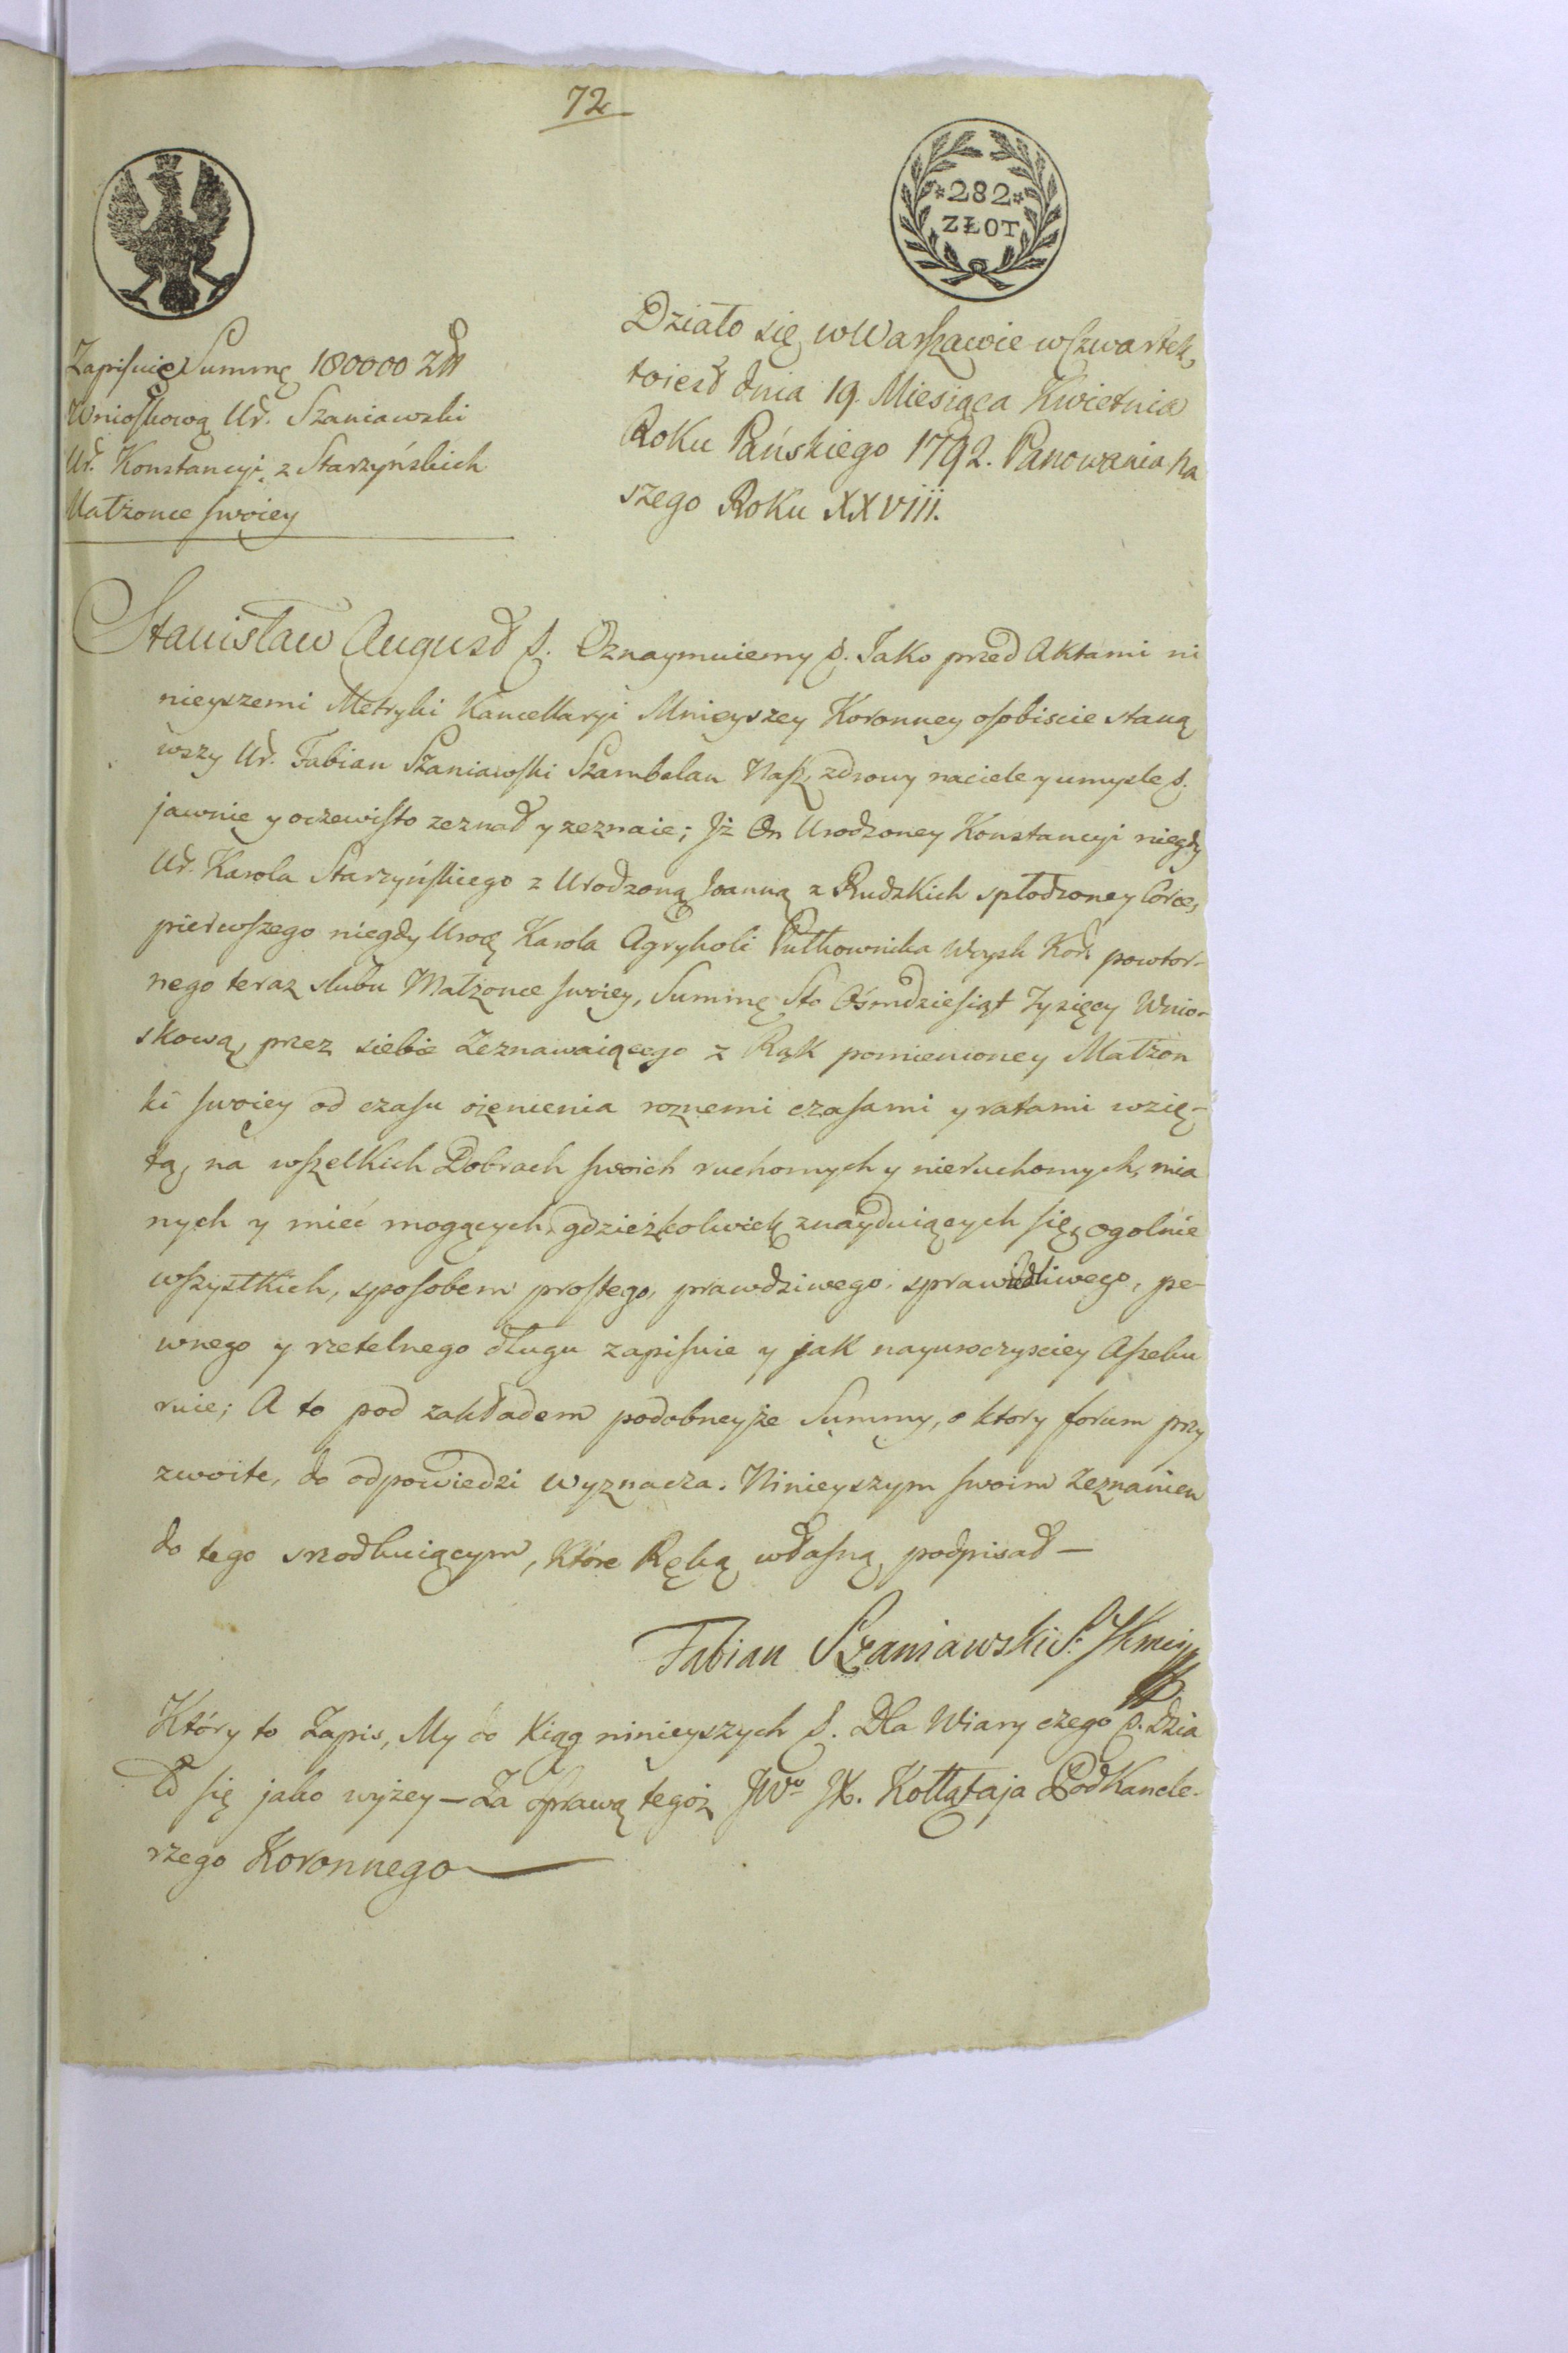 72
*282*
ZŁOT
Zapisuie Summę 180000 Złł
Wnioskową Ur. Szaniawski
Ur. Konstancyi z Starzyńskich
Małżonce swoiey
Działo się w Warszawie w Czwartek,
toiest dnia 19. Miesiąca Kwietnia
Roku Pańskiego 1792. Panowania na
szego Roku XXVIII.
Stanisław August &. Oznaymuiemy &. Jako przed Aktami ni
nieyszemi Metryki Kancellaryi Mnieyszey Koronney osobiscie staną
wszy Ur. Fabian Szaniawski Szambelan Nasz, zdrowy na ciele y umysle &.
jawnie y oczewisto zeznał y zeznaie; Jż On Urodzoney Konstancyi niegdy
Ur. Karola Starzyńskiego z Urodzoną Joanną z Rudzkich spłodzoney Corce,
pierwszego niegdy Urod Karola Agrykoli Pułkownika Woysk Kor. powtor-
nego teraz slubu Małżonce swoiey, Summę Sto Ośmdziesiąt Tysięcy Wnio-
skową, przez siebie Zeznawaiącego z Rąk pomienioney Małżon
ki swoiey od czasu ożenienia roznemi czasami y ratami wzię-
tą, na wszelkich Dobrach swoich ruchomych y nieruchomych, mia
nych y mieć mogących, gdzieżkolwiek znayduiących się, ogolnie
wszystkich, sposobem prostego, prawdziwego, sprawiedliwego, pe-
wnego y rzetelnego długu zapisuie y jak nayuroczysciey Assehu
ruie; A to pod zakładem podobneyże Summy, o ktory forum przy
zwoite, do odpowiedzi wyznacza. Ninieyszym swoim Zeznaniem
do tego srzodkuiącym, które Ręką własną podpisał —
Fabian Szaniawski S. JKmci
Który to Zapis, My do Xiąg ninieyszych &. Dla Wiary czego &. Dzia
ło się jako wyżey — Za sprawą tegoż JWo JX. Kołłątaja PodKancle-
rzego Koronnego —